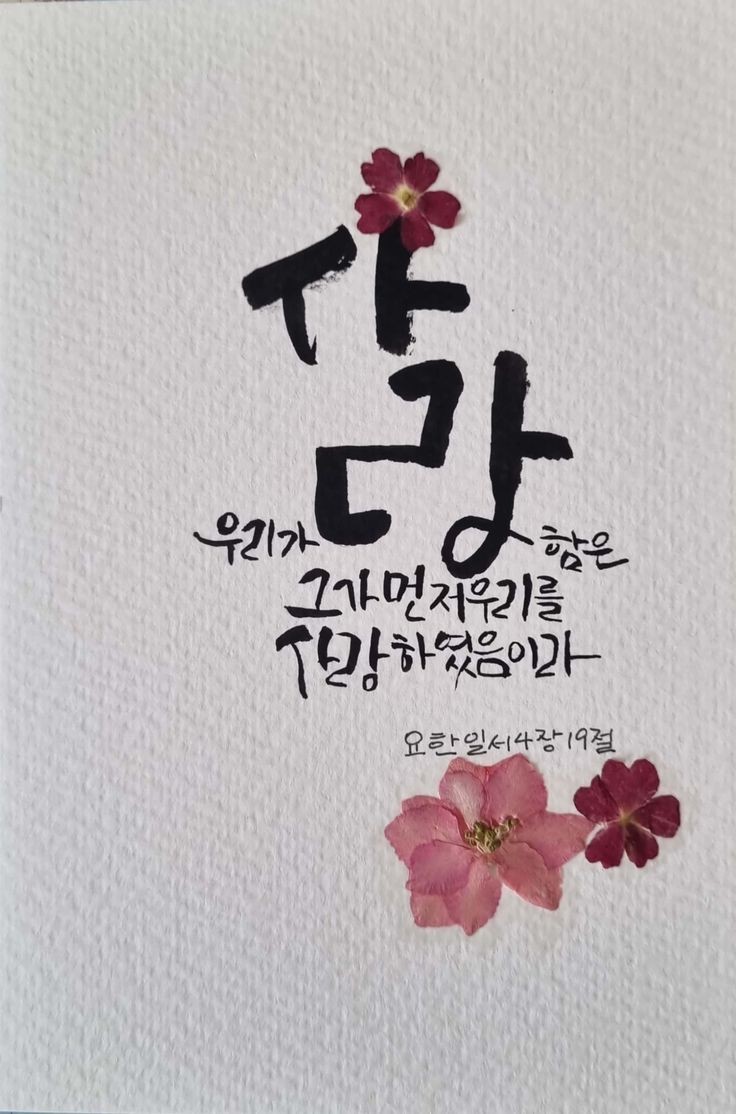 사
랑
우리가 함은
그가 먼저 우리를
사랑하였음이라
요한일서4장19절